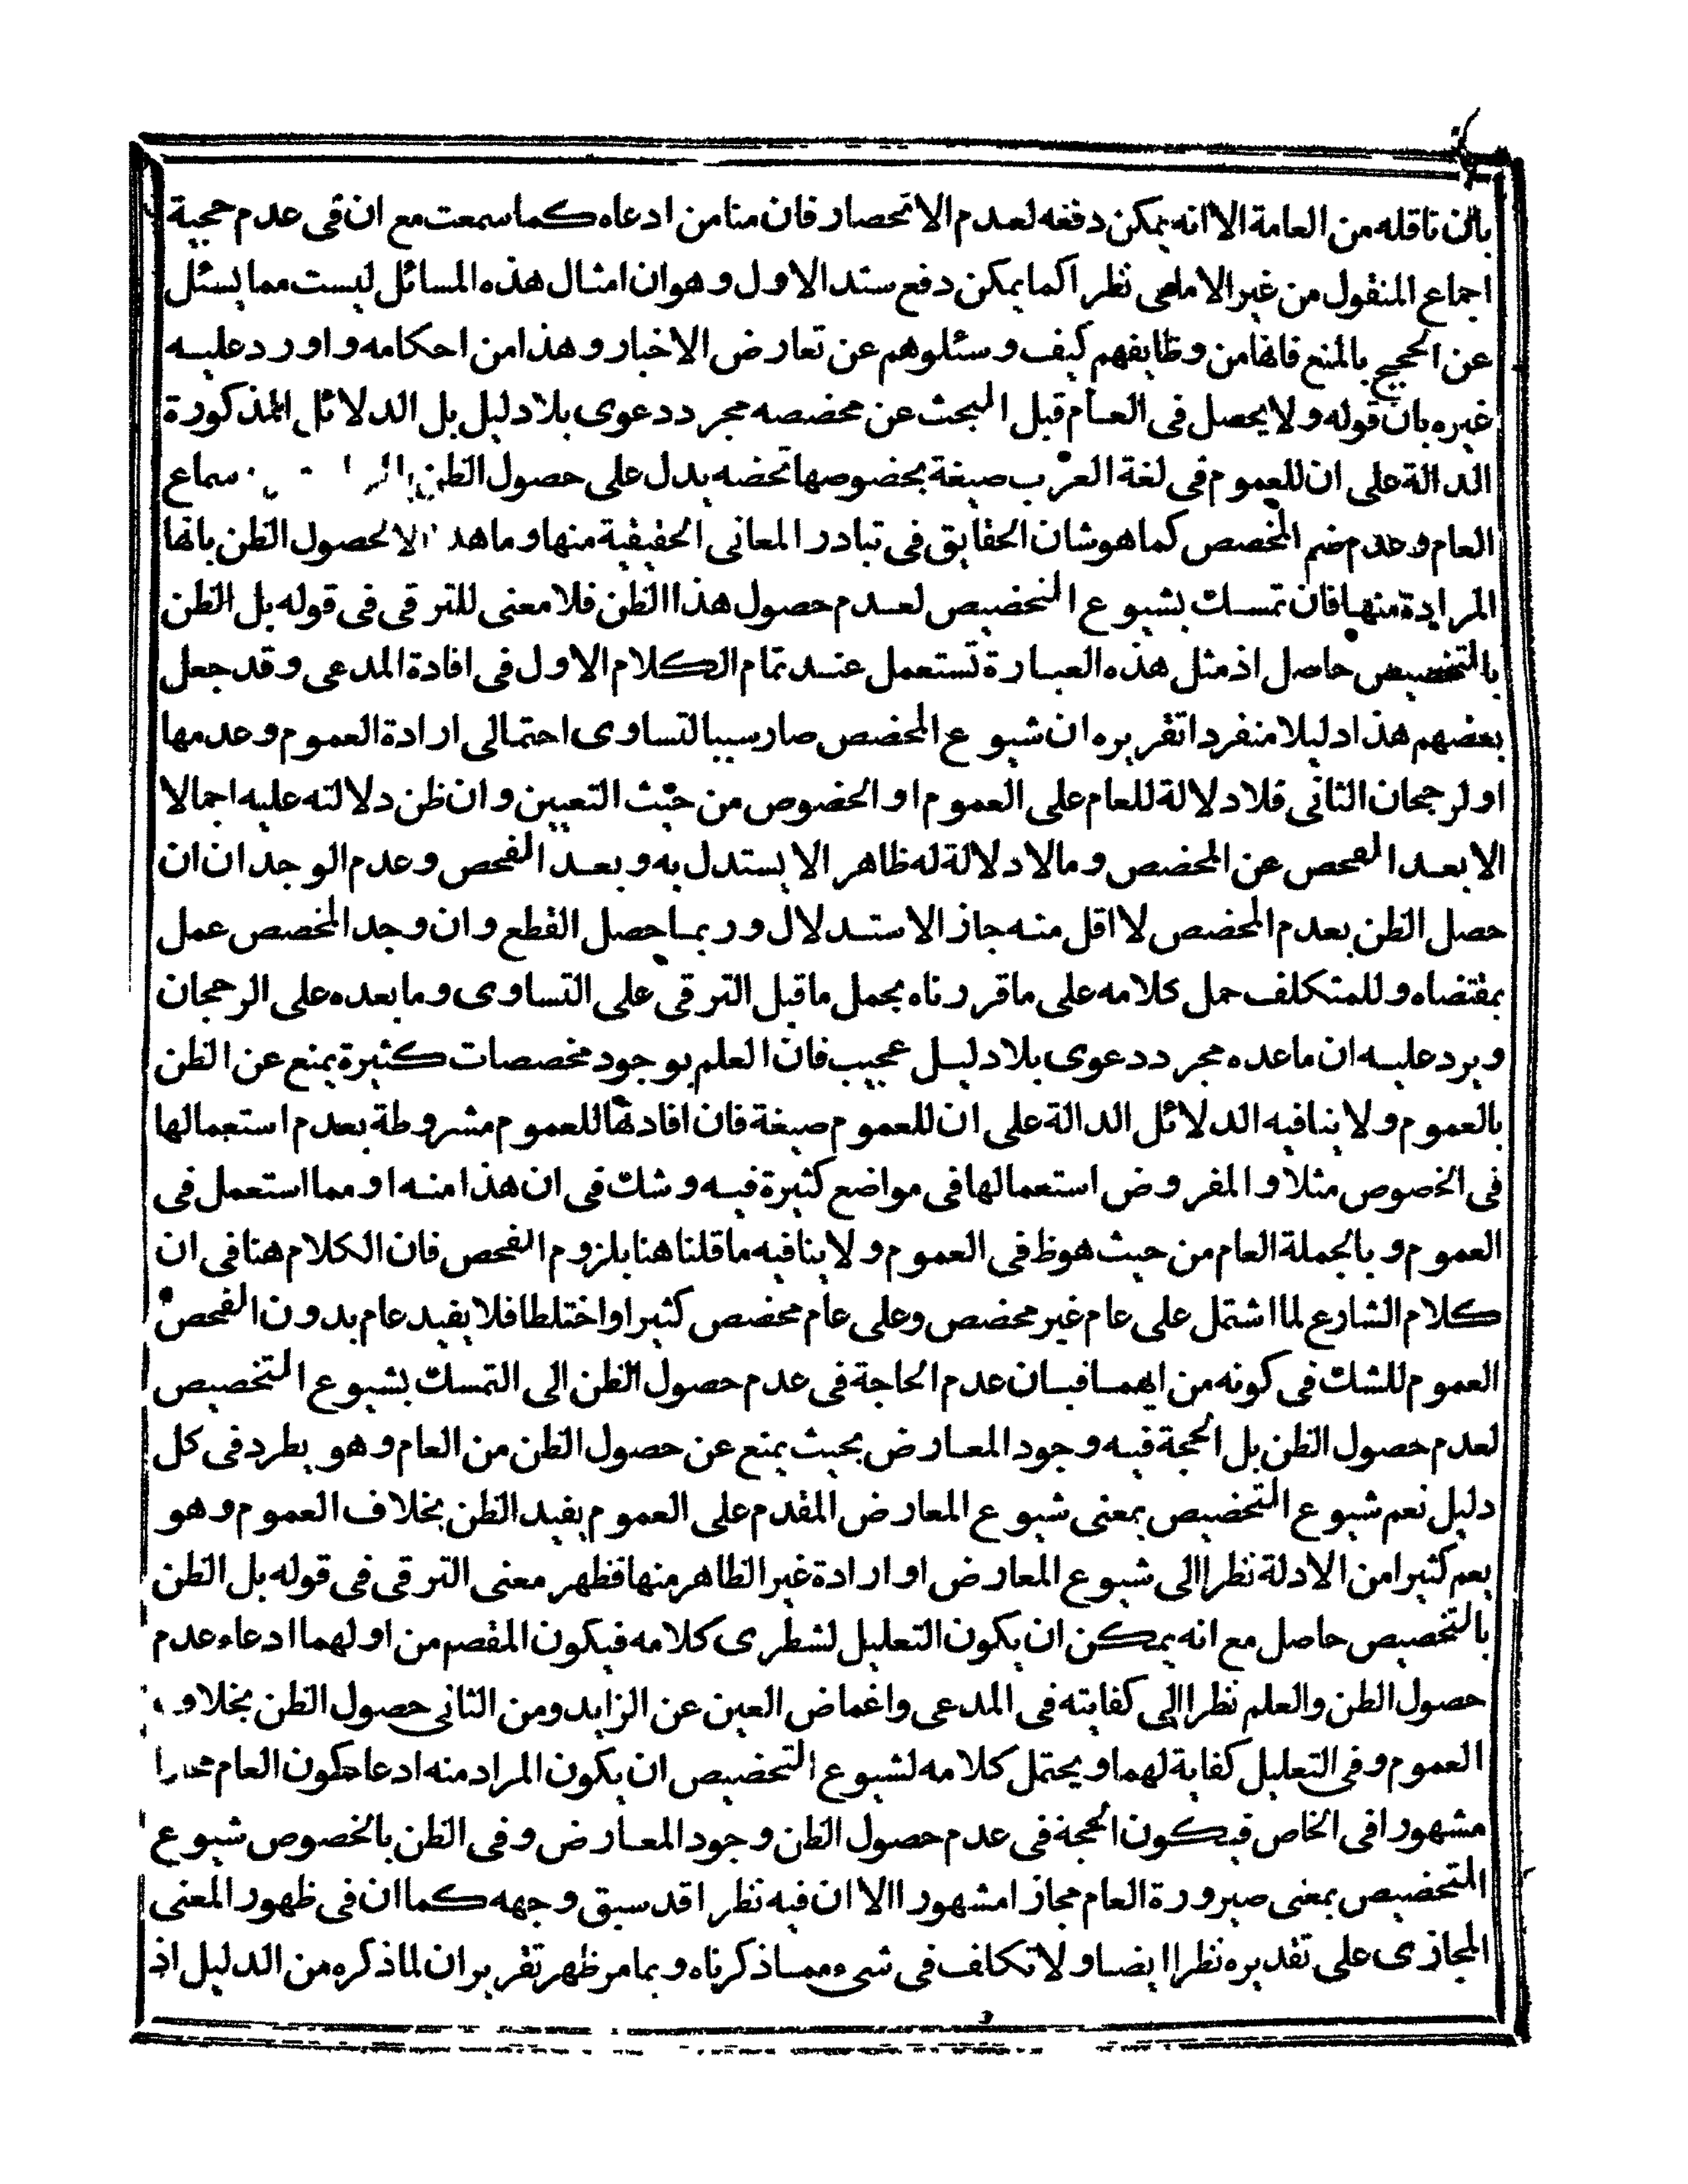 بان ناقله من العامة الا انه يمكن دفعه لعدم الانحصار فان منا من ادعاه كما سمعت مع ان فى عدم حجية
اجماع المنقول من غير الامامى نظرا كما يمكن دفع سند الاول وهو ان امثال هذه المسائل ليست مما يسئل
عن الحجج بالمنع فانها من وظايفهم كيف وسئلوهم عن تعارض الاخبار وهذا من احكامه واورد عليه
غيره بان قوله ولا يحصل فى العام قبل البحث عن مخصصه مجرد دعوى بلا دليل بل الدلائل المذكورة
الدالة على ان للعموم فى لغة العرب صيغة بخصوصها تخصه يدل على حصول الظن سماع
العام وعدم ضم المخصص كما هو شان الحقايق فى تبادر المعانى الحقيقية منها وما هذ الا لحصول الظن بانها
المرادة منها فان تمسك بشيوع التخصيص لعدم حصول هذا الظن فلا معنى للترقى فى قوله بل الظن
بالتخصيص حاصل اذ مثل هذه العبارة تستعمل عند تمام الكلام الاول فى افادة المدعى وقد جعل
بعضهم هذا دليلا منفردا تقريره ان شيوع المخصص صار سببا لتساوى احتمالى ارادة العموم وعدمها
او لرجحان الثانى فلا دلالة للعام على العموم او الخصوص من حيث التعيين وان ظن دلالته عليه اجمالا
الا بعد الفحص عن المخصص وما لا دلالة له ظاهرا لا يستدل به وبعد الفحص وعدم الوجدان ان
حصل الظن بعدم المخصص لا اقل منه جاز الاستدلال وربما حصل القطع وان وجد المخصص عمل
بمقتضاه وللمتكلف حمل كلامه على ما قررناه بحمل ما قبل الترقى على التساوى وما بعده على الرحجان
ويرد عليه ان ما عده مجرد دعوى بلا دليل عجيب فان العلم بوجود مخصصات كثيرة يمنع عن الظن
بالعموم ولا ينافيه الدلائل الدالة على ان للعموم صيغة فان افادتها للعموم مشروطة بعدم استعمالها
فى الخصوص مثلا والمفروض استعمالها فى مواضع كثيرة فيه وشك فى ان هذا منه او مما استعمل فى
العموم وبالجملة العام من حيث هو ظ فى العموم ولا ينافيه ما قلنا هنا بلزوم الفحص فان الكلام هنا فى ان
كلام الشارع لما اشتمل على عام غير مخصص وعلى عام مخصص كثيرا واختلطا فلا يفيد عام بدون الفحص
العموم للشك فى كونه من ايهما فبان عدم الحاجة فى عدم حصول الظن الى التمسك بشيوع التخصيص
لعدم حصول الظن بل الحجة فيه وجود المعارض بحيث يمنع عن حصول الظن من العام وهو يطرد فى كل
دليل نعم شيوع التخصيص بمعنى شيوع المعارض المقدم على العموم يفيد الظن بخلاف العموم وهو
يعم كثيرا من الادلة نظرا الى شيوع المعارض او ارادة غير الظاهر منها فظهر معنى الترقى فى قوله بل الظن
بالتخصيص حاصل مع انه يمكن ان يكون التعليل لشطرى كلامه فيكون المقصم من اولهما ادعاء عدم
حصول الظن والعلم نظرا الى كفايته فى المدعى واغماض العين عن الزايد ومن الثانى حصول الظن بخلاف
العموم وفى التعليل كفاية لهما ويحتمل كلامه لشيوع التخصيص ان يكون المراد منه ادعا كون العام مجازا
مشهورا فى الخاص فيكون الحجة فى عدم حصول الظن وجود المعارض وفى الظن بالخصوص شيوع
التخصيص بمعنى صيرورة العام مجازا مشهورا الا ان فيه نظرا قد سبق وجهه كما ان فى ظهور المعنى
المجازى على تقديره نظرا ايضا ولا تكلف فى شىء مما ذكرناه وبما مر ظهر تقرير ان لما ذكره من الدليل اذ